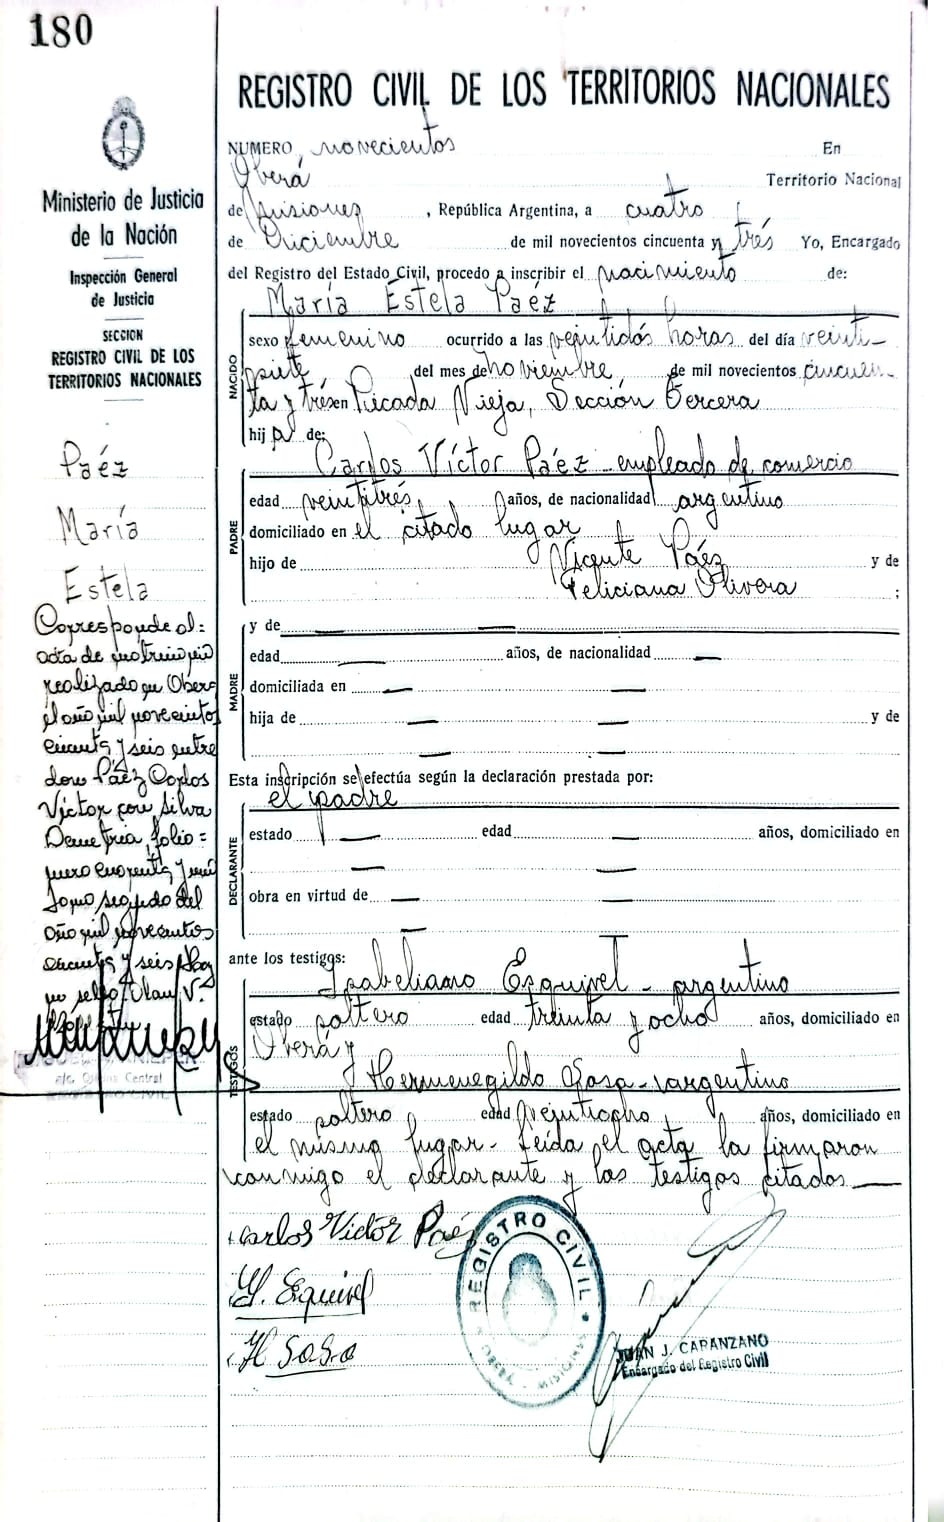 180
REGISTRO CIVIL DE LOS TERRITORIOS NACIONALES
NUMERO, novecientos En
Oberá Territorio Nacional
de Misiones , República Argentina, a cuatro
de Diciembre de mil novecientos cincuenta y trés Yo, Encargado
del Registro del Estado Civil, procedo a inscribir el nacimiento de:
María Estela Paéz
NACIDO
sexo femenino ocurrido a las veintidós horas del día veinti-
siete del mes de noviembre de mil novecientos cincuen-
ta y trés en Picada Vieja, Sección Tercera
hij a de:
Carlos Víctor Paéz - empleado de comercio
PADRE
edad veintitrés años, de nacionalidad argentino
domiciliado en el citado lugar
hijo de Vicente Paéz y de
Feliciana Olivera ;
MADRE
y de
edad años, de nacionalidad
domiciliada en
hija de y de
Esta inscripción se efectúa según la declaración prestada por:
el padre
DECLARANTE
estado edad años, domiciliado en
obra en virtud de
ante los testigos:
Ysabeliano Esquivel - argentino
TESTIGOS
estado soltero edad treinta y ocho años, domiciliado en
Oberá y
Hermenegildo Sosa - argentino
estado soltero edad veintiocho años, domiciliado en
el mismo lugar - Leída el acta la firmaron
conmigo el declarante y los testigos citados
Carlos Victor Paéz
Y. Esquivel
H Sosa
REGISTRO CIVIL
MISIONES
JUAN J. CAPANZANO
Encargado del Registro Civil
Ministerio de Justicia
de la Nación
Inspección General
de Justicia
SECCION
REGISTRO CIVIL DE LOS
TERRITORIOS NACIONALES
Paéz
María
Estela
Corresponde al:
acta de matrimonio
realizado en Oberá
el año mil novecientos
cincuenta y seis entre
don Páez Carlos
Víctor con Silva
Demetria, folio =
número cuarenta y uno
tomo segundo del
año mil novecientos
cincuenta y seis Hay
un sello
Central